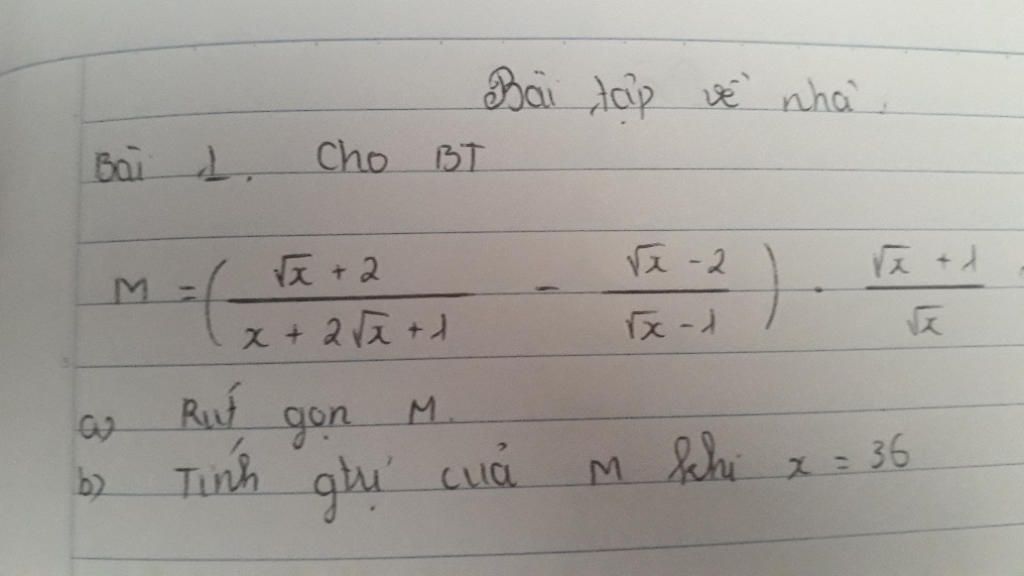 Bài tập về nhà.
Bài 1. Cho BT
M = ( (√x + 2)/(x + 2√x + 1) - (√x - 2)/(√x - 1) ) . (√x + 1)/√x
a) Rút gọn M.
b) Tính gtrị của M khi x = 36